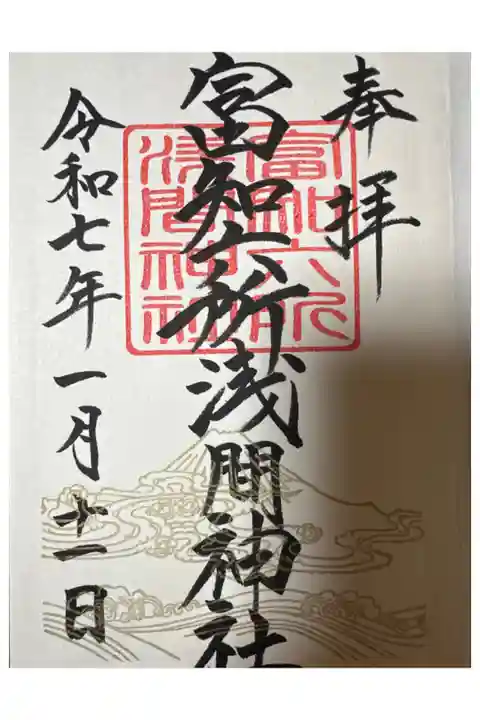 奉拝
富知六所浅間神社
富知六所
浅間神社
令和七年一月十一日